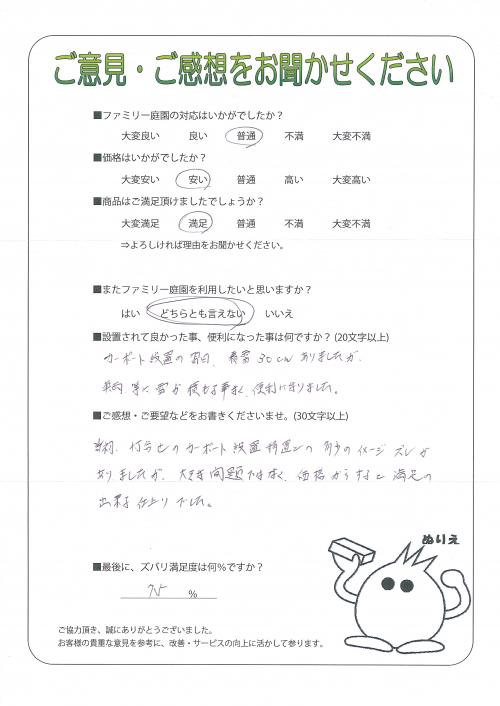 ご意見・ご感想をお聞かせください
■ファミリー庭園の対応はいかがでしたか？
大変良い 良い 普通 不満 大変不満
■価格はいかがでしたか？
大変安い 安い 普通 高い 大変高い
■商品はご満足頂けましたでしょうか？
大変満足 満足 普通 不満 大変不満
⇒よろしければ理由をお聞かせください。
■またファミリー庭園を利用したいと思いますか？
はい どちらとも言えない いいえ
■設置されて良かった事、便利になった事は何ですか？(20文字以上)
カーポート設置の翌日、積雪30cmありましたが、
車に雪が積もる事なく、便利になりました。
■ご感想・ご要望などをお書きくださいませ。(30文字以上)
当初、打合せのカーポート設置位置との多少のイメージズレが
ありましたが、大きな問題ではなく、価格からすると満足の
出来る仕上りでした。
ぬりえ
■最後に、ズバリ満足度は何％ですか？
％
ご協力頂き、誠にありがとうございました。
お客様の貴重な意見を参考に、改善・サービスの向上に活かして参ります。